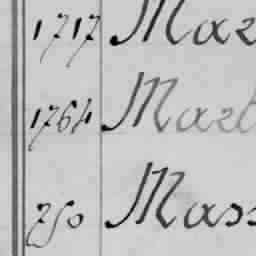 1717 Maz
1764 Mart
750 Mass